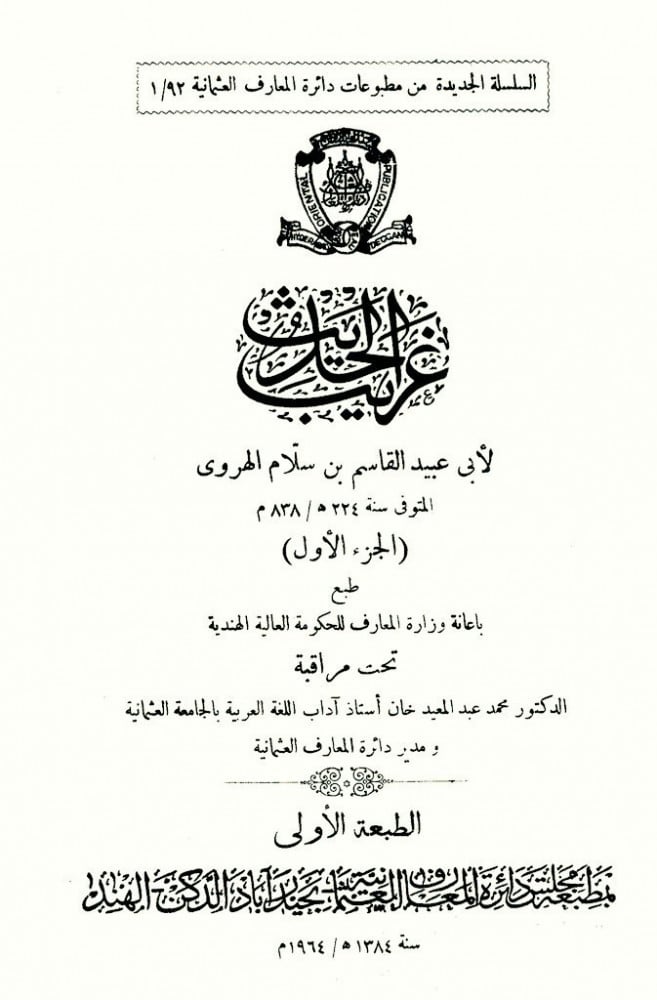 السلسلة الجديدة من مطبوعات دائرة المعارف العثمانية ١/٩٢
ORIENTAL PUBLICATION
HYDERABAD DECCAN
غريب الحديث
لأبى عبيد القاسم بن سلّام الهروى
المتوفى سنة ٢٢٤ ه / ٨٣٨ م
(الجزء الأول)
طبع
باعانة وزارة المعارف للحكومة العالية الهندية
تحت مراقبة
الدكتور محمد عبد المعيد خان أستاذ آداب اللغة العربية بالجامعة العثمانية
و مدير دائرة المعارف العثمانية
الطبعة الأولى
بمطبعة مجلس دائرة المعارف العثمانية بحيدر آباد الدكن الهند
سنة ١٣٨٤ ه / ١٩٦٤ م